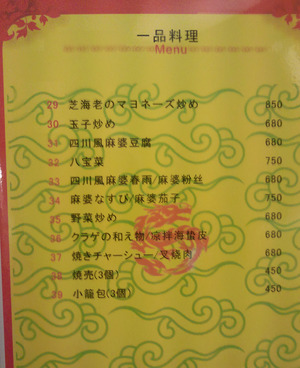 一品料理
Menu
29 芝海老のマヨネーズ炒め 850
30 玉子炒め 680
31 四川風麻婆豆腐 680
32 八宝菜 750
33 四川風麻婆春雨/麻婆粉丝 680
34 麻婆なすび/麻婆茄子 750
35 野菜炒め 680
36 クラゲの和え物/凉拌海蜇皮 680
37 焼きチャーシュー/叉烧肉 680
38 焼売(3個) 450
39 小籠包(3個) 450